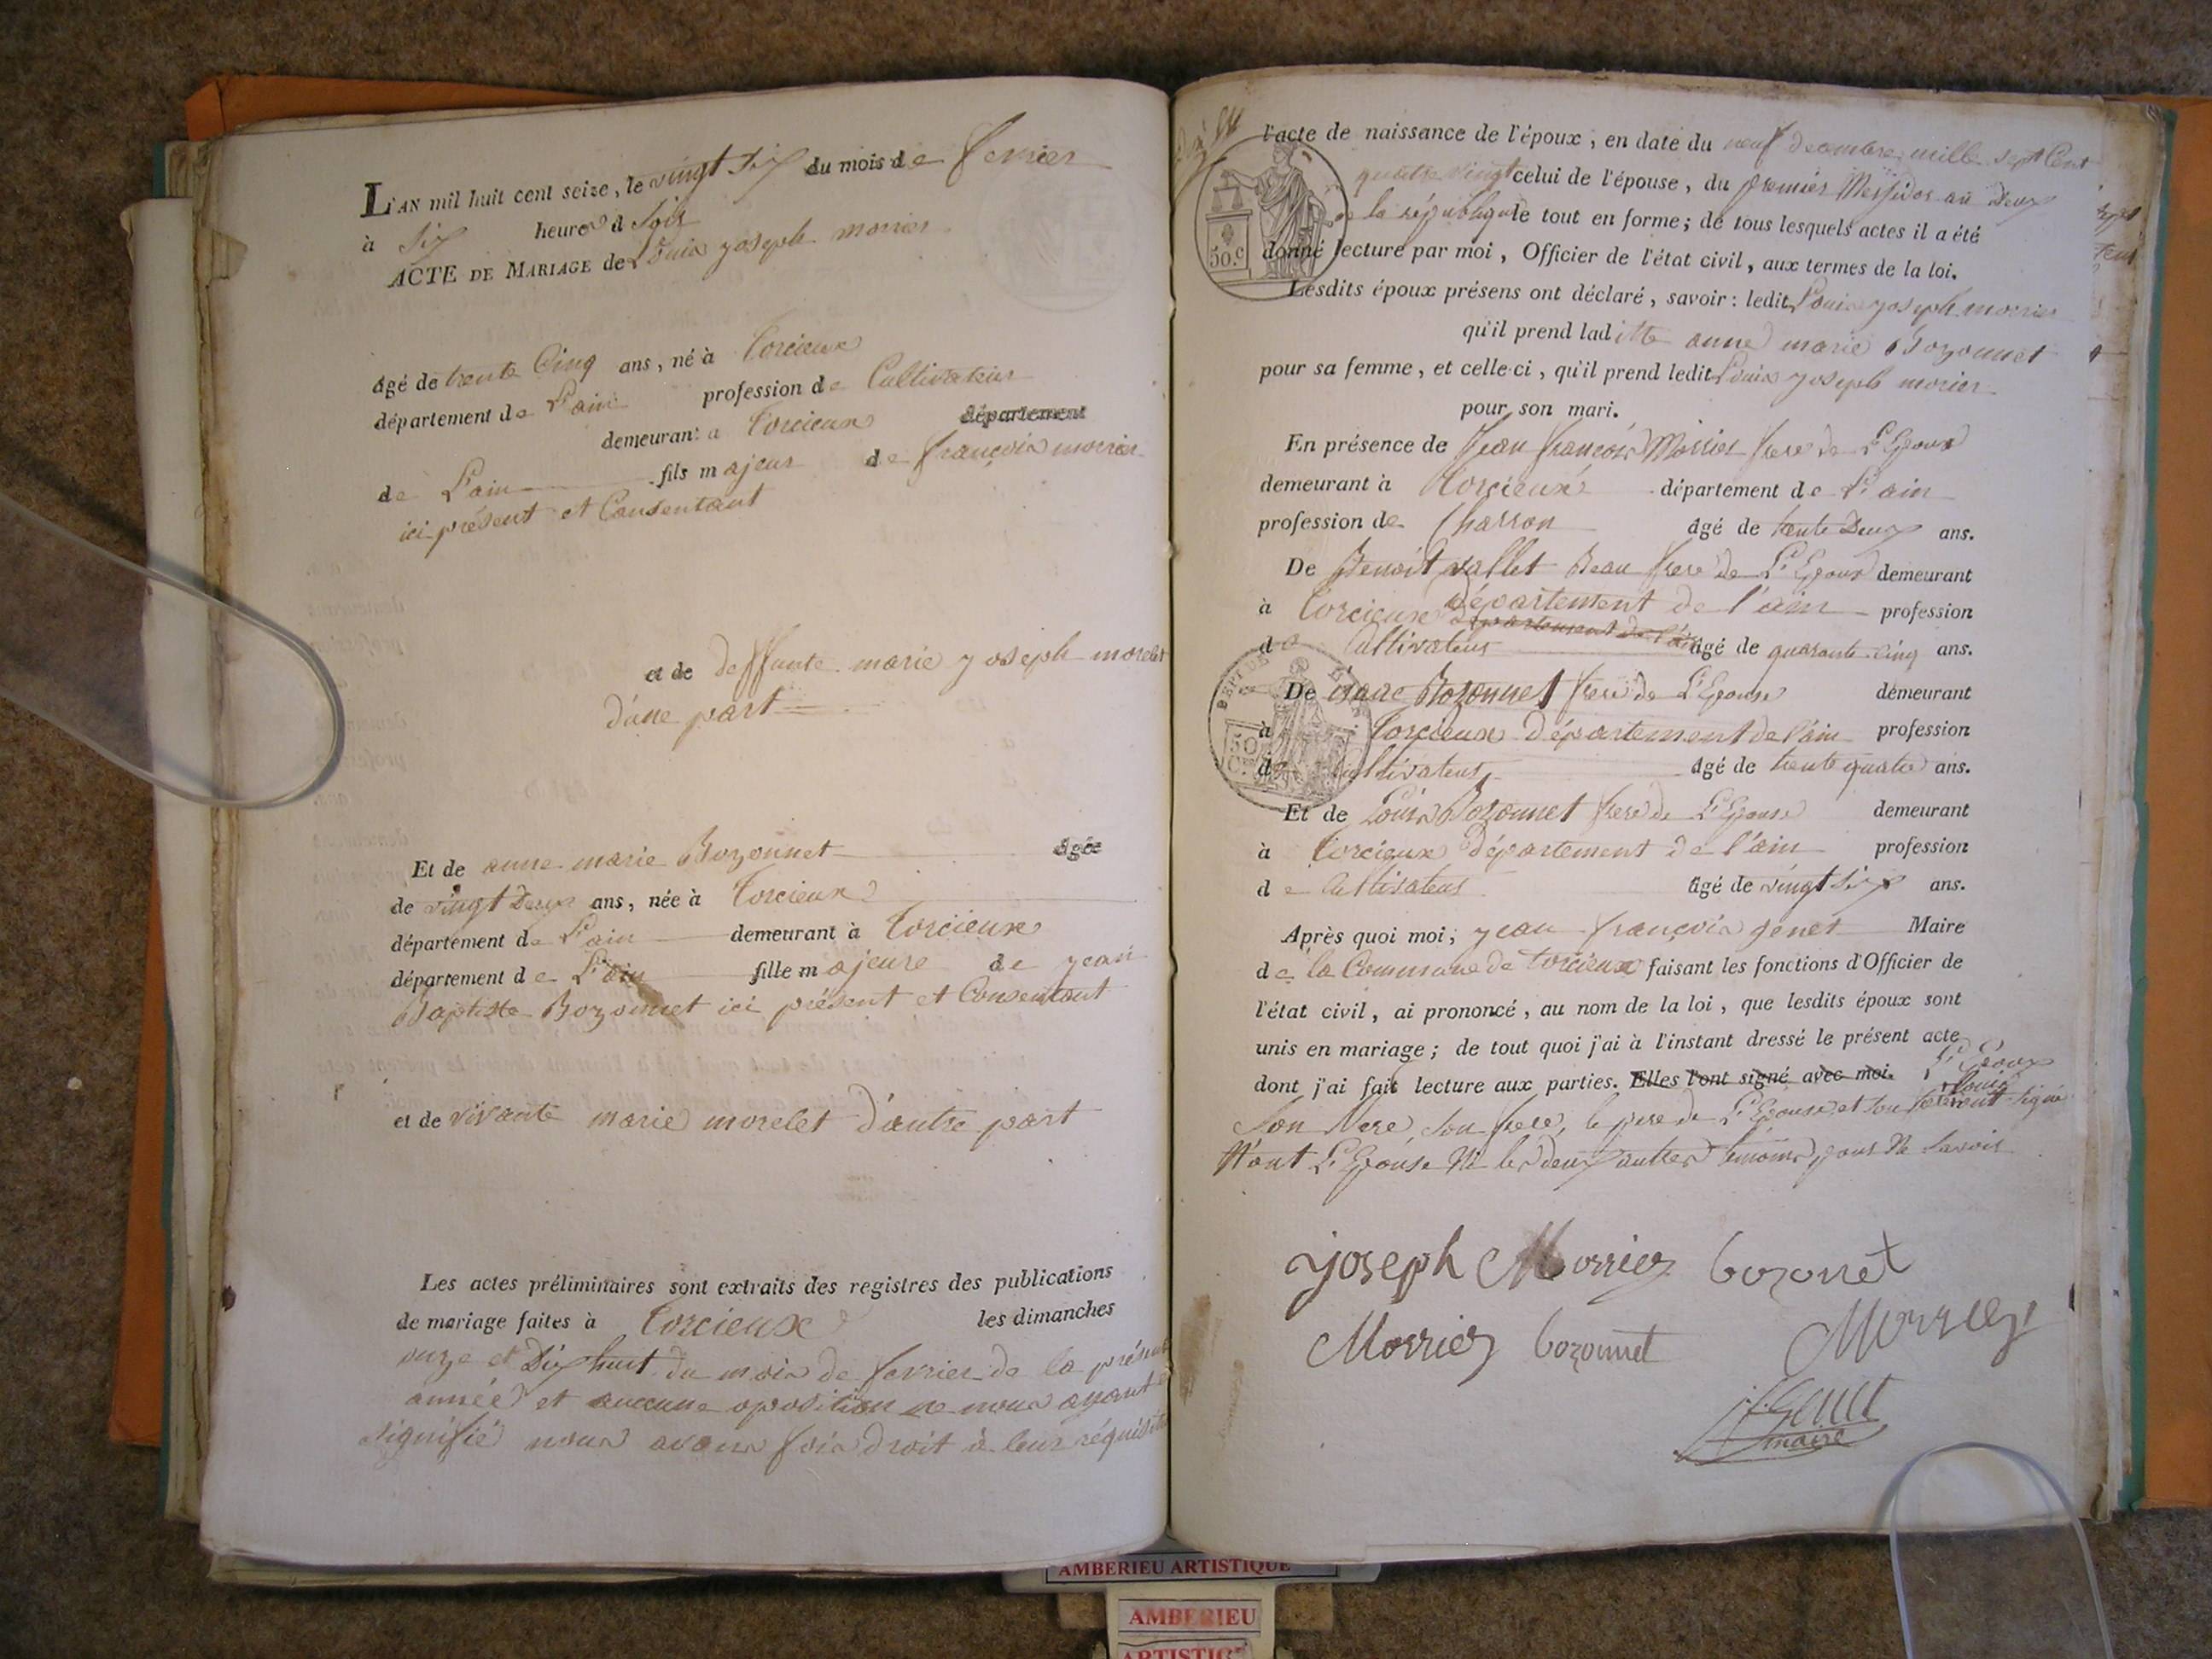 L'AN mil huit cent seize, le vingt six du mois de fevrier
à Six heures d Soir
ACTE DE MARIAGE de Louis joseph morrier
âgé de trente Cinq ans, né à torcieux
département de L'ain profession de Cultivateur
demeurant a torcieux département
de L'ain fils majeur de françois morrier
ici présent et Consentant
et de deffunte marie joseph morelet
d'une part
Et de anne marie Bozonnet âgée
de vingt Deux ans, née à torcieux
département de L'ain demeurant à torcieux
département de L'ain fille majeure de jean
Baptiste Bozonnet ici présent et Consentant
et de vivante marie morelet d'autre part
Les actes préliminaires sont extraits des registres des publications
de mariage faites à torcieux les dimanches
onze et Dix huit du mois de fevrier de la présente
année et aucune oposition ne nous ayant
signifié nous avons fais droit à leur réquisition
l'acte de naissance de l'époux, en date du neuf decembre mille sept Cent
quatre vingt celui de l'épouse, du premier Messidor an Deux
de la république le tout en forme; de tous lesquels actes il a été
donné lecture par moi, Officier de l'état civil, aux termes de la loi.
Lesdits époux présens ont déclaré, savoir: ledit Louis joseph morrier
qu'il prend laditte anne marie Bozonnet
pour sa femme, et celle-ci, qu'il prend ledit Louis joseph morier
pour son mari.
En présence de Jean françois Morrier frere de L'Epoux
demeurant à torcieux département de L'ain
profession de Charron âgé de trente Deux ans.
De Benoit vallet Beau frere de L'Epoux demeurant
à torcieux département de l'ain profession
département de l'ain
de Cultivateur âgé de quarante cinq ans.
De Bozonnet frere de L'Epouse demeurant
à torcieux département de l'ain profession
de Cultivateur âgé de trente quatre ans.
Et de Louis Bozonnet frere de L'Epouse demeurant
à torcieux département de l'ain profession
de Cultivateur âgé de vingt six ans.
Après quoi moi, jean françois genet Maire
de la Commune de torcieux faisant les fonctions d'Officier de
l'état civil, ai prononcé, au nom de la loi, que lesdits époux sont
unis en mariage; de tout quoi j'ai à l'instant dressé le présent acte
dont j'ai fait lecture aux parties. Elles l'ont signé avec moi. L'Epoux
Louis
Son Pere, son frere, le pere de L'Epouse et son frere ont signé
N'ont L'Epouse Ni les deux autres temoins pour Ne Savoir
joseph Morrier bozonet
Morrier bozonnet Morrier
jf Genet
maire
50.c
50
C.
AMBERIEU ARTISTIQUE
AMBERIEU
ARTISTIQ